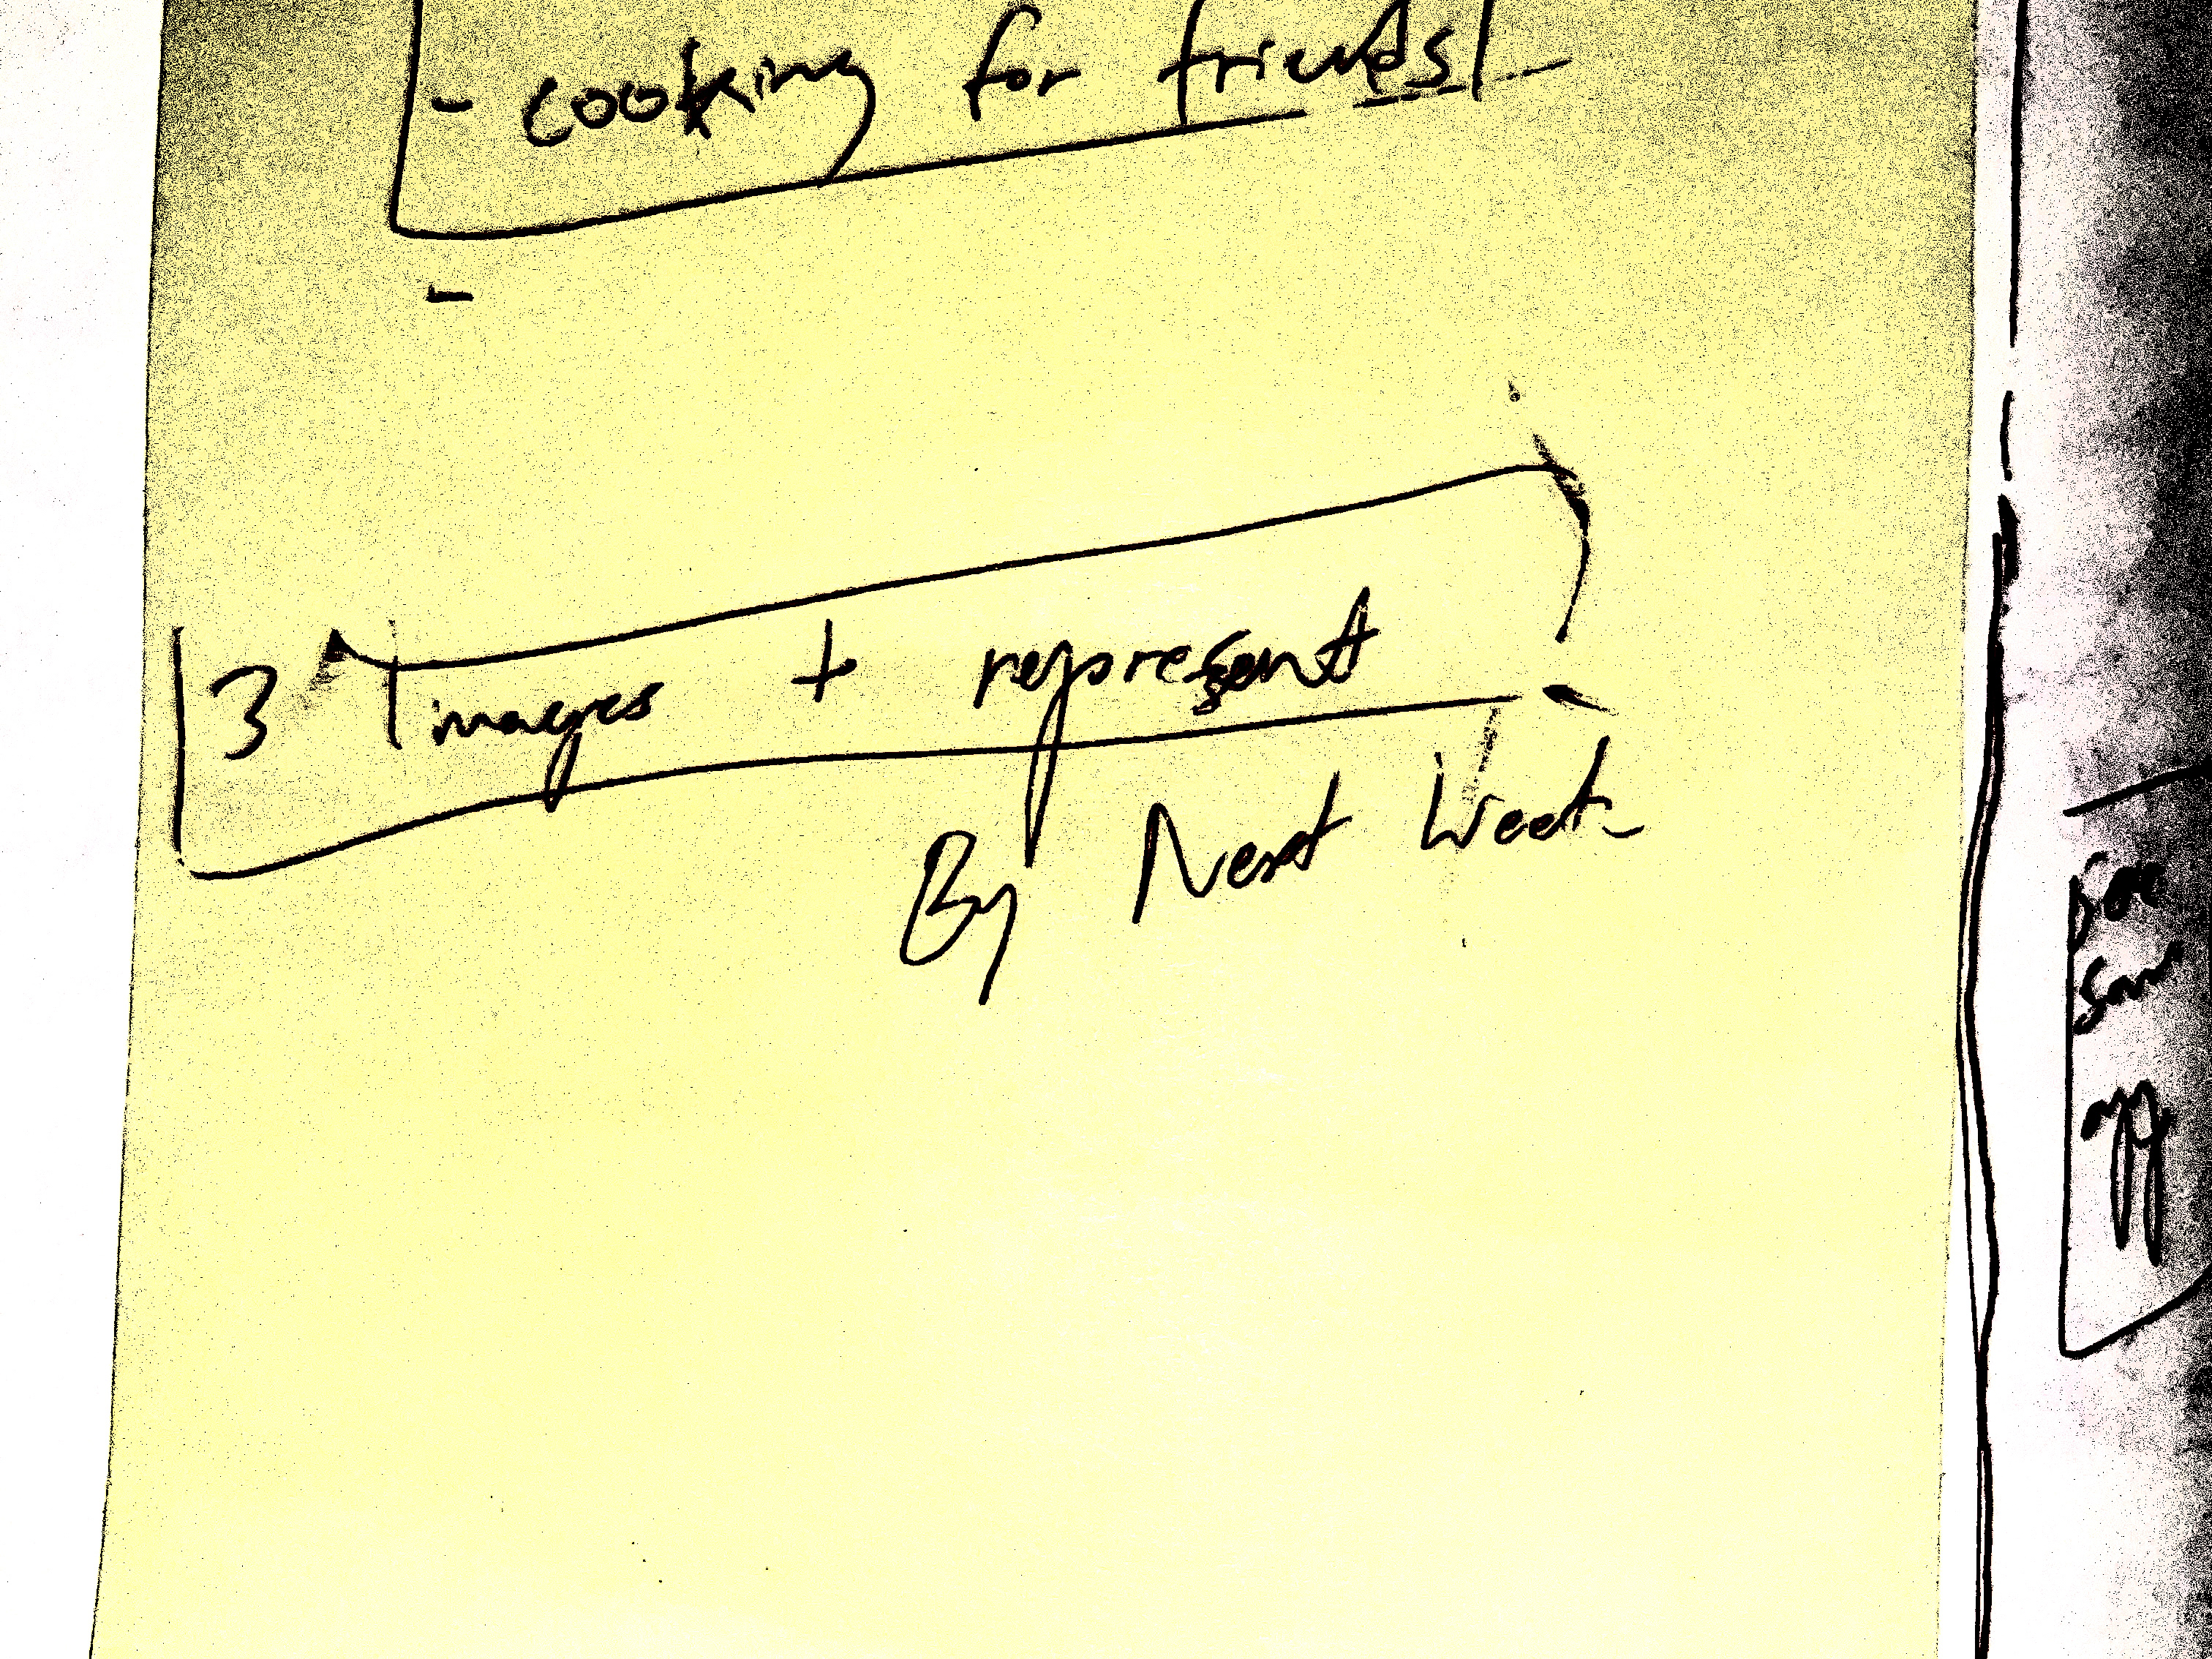 - cooking for friends
-
3 images + represent
By Next Week